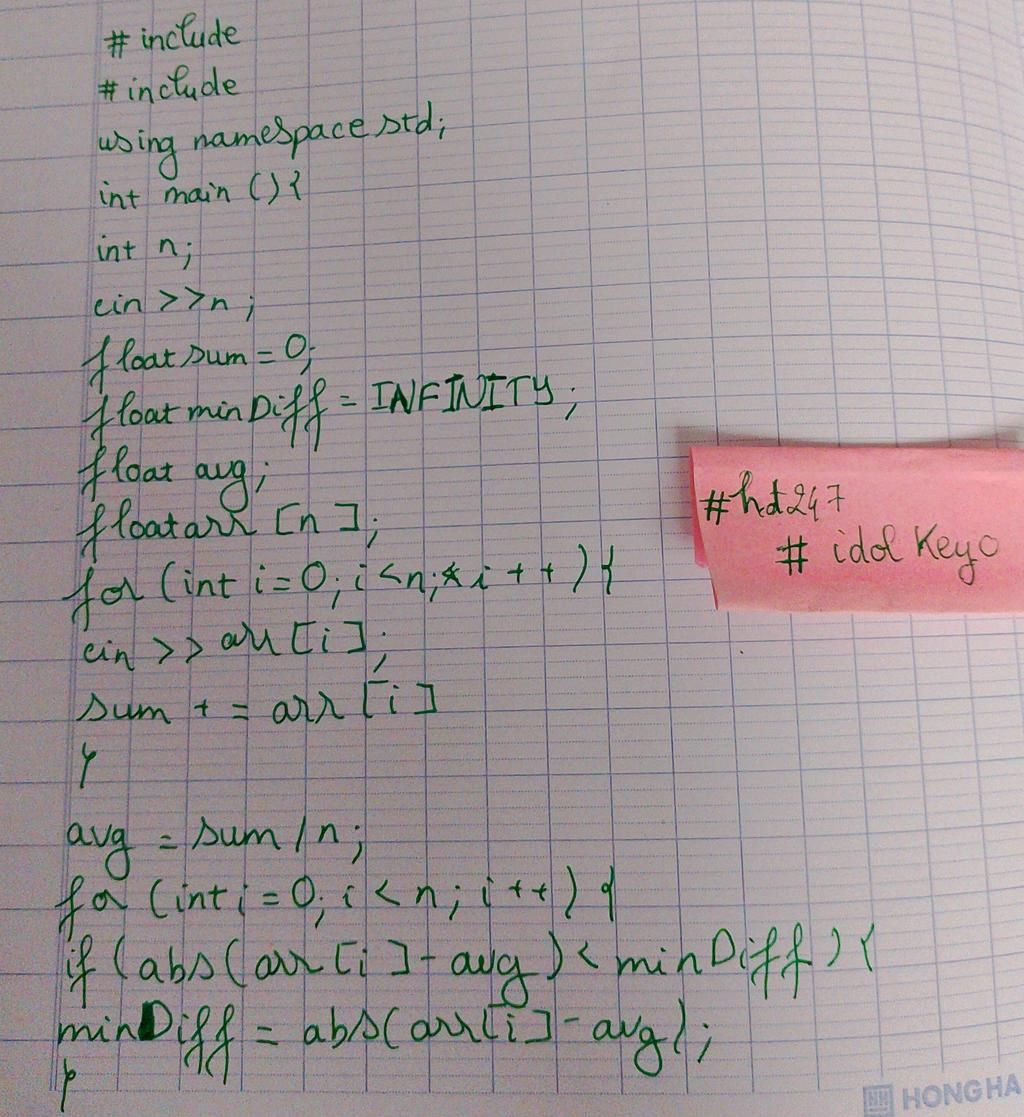 # include
# include
using namespace std;
int main () {
int n;
cin >> n ;
float sum = 0;
float minDiff = INFINITY ;
float avg;
float arr [n];
for (int i = 0; i < n; i + + ) {
cin >> arr [i];
sum + = arr [i]
}
avg = sum / n;
for (int i = 0; i < n ; i ++ ) {
if (abs(arr [i] - avg ) < minDiff ) {
minDiff = abs(arr[i] - avg);
}
#hd247
# idol Keyo
HH HONG HA